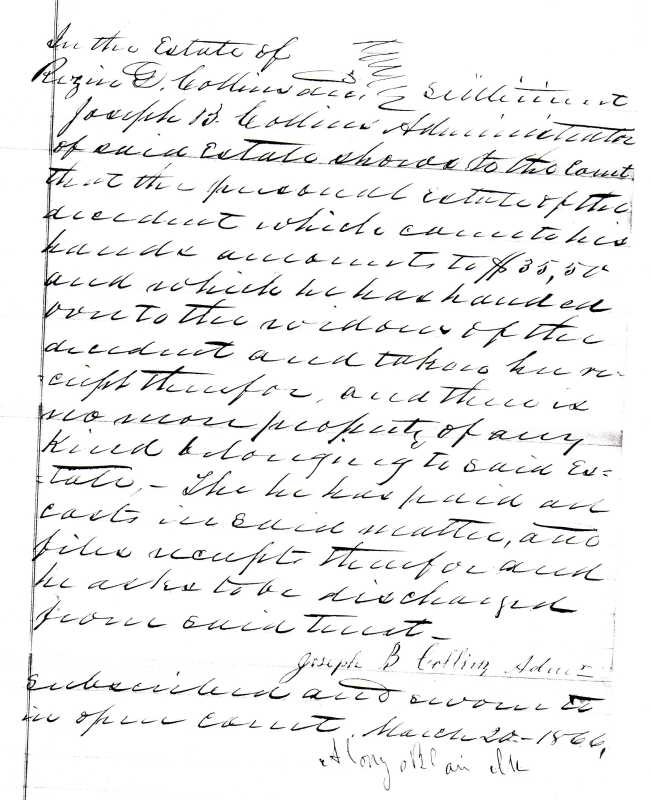 In the Estate of
Rezin D. Collins dec. Settlement
Joseph B. Collins Administrator
of said Estate shows to the Court
that the personal Estate of the
decedent which came to his
hands amounts to $35,50
and which he has handed
over to the widow of the
decedent and taken her re-
ceipt therefor, and there is
no more property of any
kind belonging to said Es-
-tate,- The he has paid all
costs in said matter, and
files receipts therefor and
he asks to be discharged
from said trust-
Joseph B Collins Admr
Subscribed and sworn to
in open court. March 20- 1866,
Alonzo Blair Clk